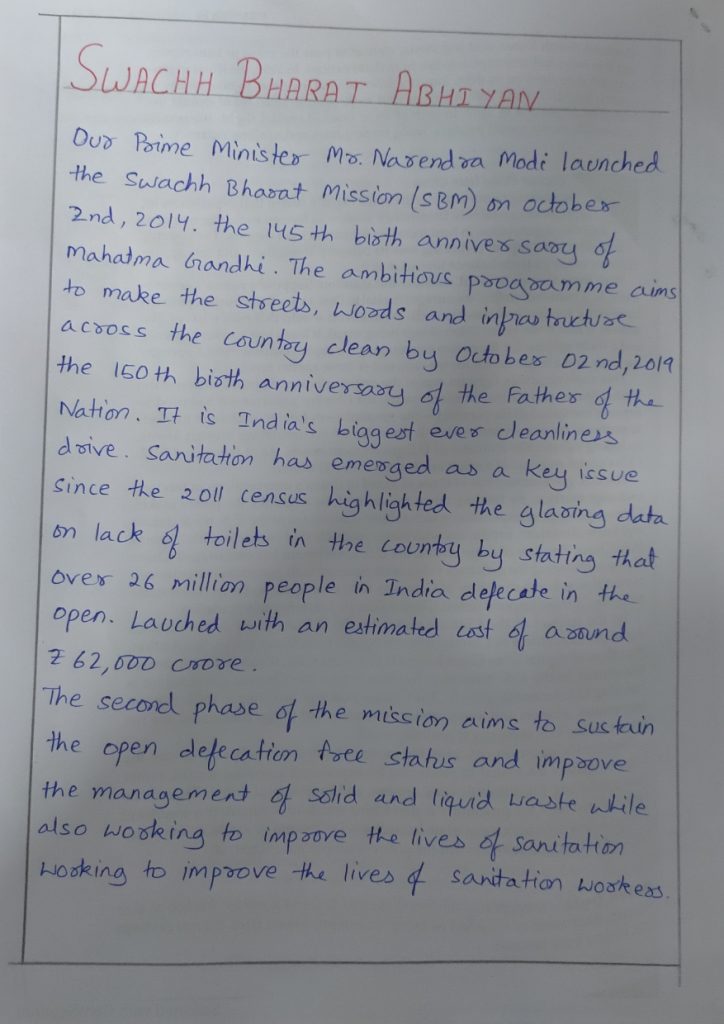 SWACHH BHARAT ABHIYAN
Our Prime Minister Mr. Narendra Modi launched
the Swachh Bharat Mission (SBM) on october
2nd, 2014. the 145th birth anniversary of
Mahatma Gandhi. The ambitious programme aims
to make the streets, words and infrastructure
across the country clean by October 02nd, 2019
the 150th birth anniversary of the Father of the
Nation. It is India's biggest ever cleanliness
drive. Sanitation has emerged as a key issue
since the 2011 census highlighted the glaring data
on lack of toilets in the country by stating that
over 26 million people in India defecate in the
open. Lauched with an estimated cost of around
₹ 62,000 crore.
The second phase of the mission aims to sustain
the open defecation free status and improve
the management of solid and liquid waste while
also working to improve the lives of sanitation
working to improve the lives of sanitation workers.